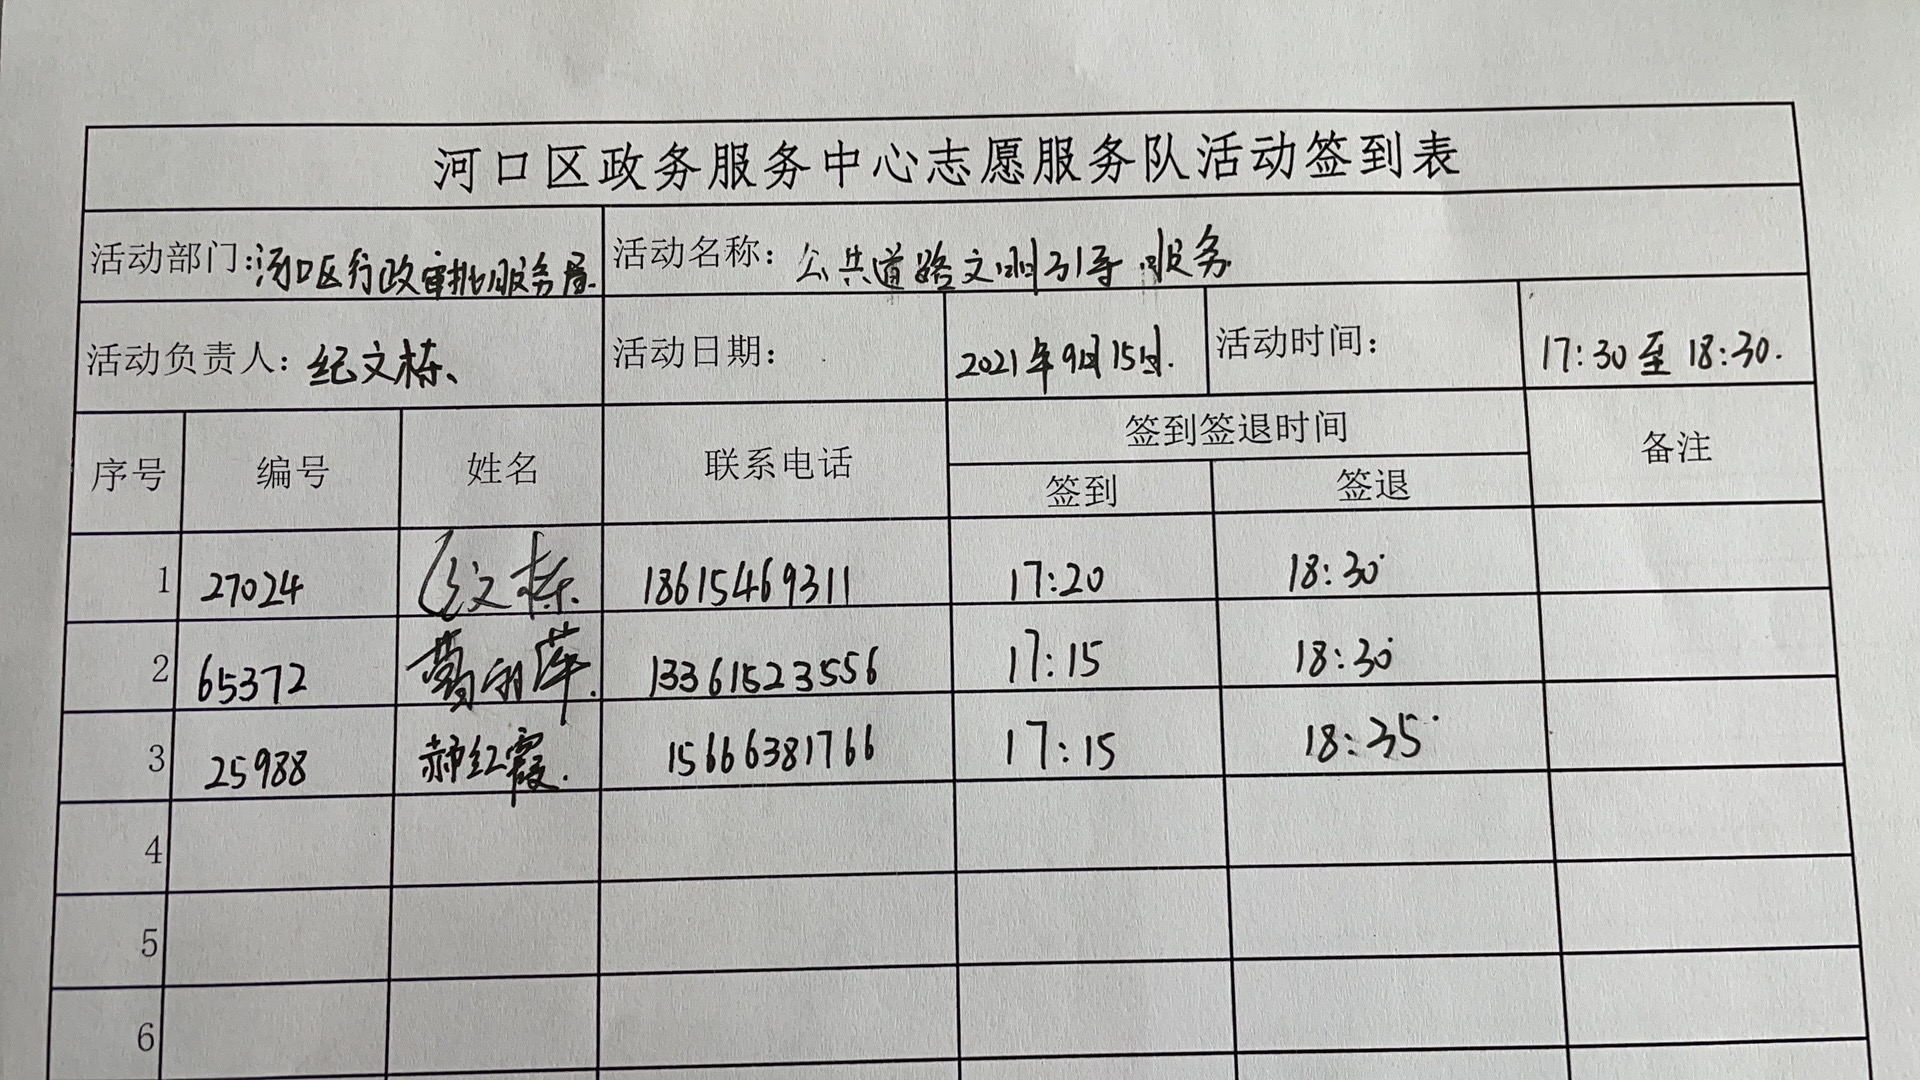 河口区政务服务中心志愿服务队活动签到表
活动部门:河口区行政审批服务局. 活动名称: 公共道路文明引导服务
活动负责人: 纪文栋、 活动日期: 2021年9月15日. 活动时间: 17:30至18:30.
序号 编号 姓名 联系电话 签到签退时间 备注
签到 签退
1 27024 纪文栋. 18615469311 17:20 18:30
2 65372 萍. 13361523556 17:15 18:30
3 25988 郝红霞. 15666381766 17:15 18:35
4
5
6